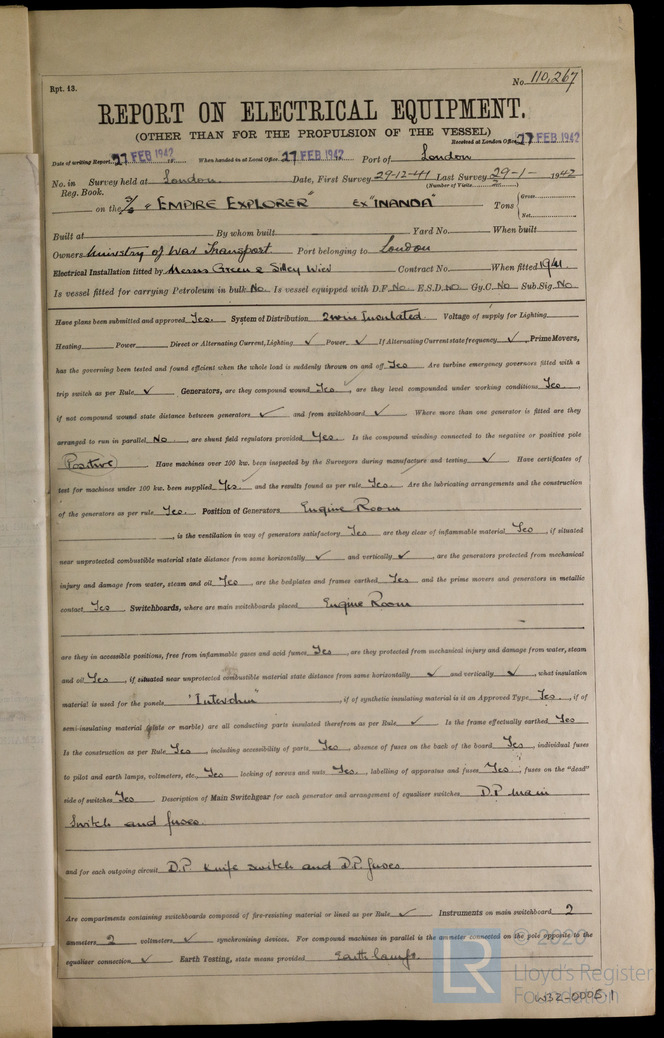 Rpt. 13.
No. 110,267
REPORT ON ELECTRICAL EQUIPMENT.
(OTHER THAN FOR THE PROPULSION OF THE VESSEL)
Received at London Office 27 FEB 1942
Date of writing Report 27 FEB 1942 When handed in at Local Office 27 FEB 1942 Port of London
No. in Survey held at London. Date, First Survey 29-12-41 Last Survey 29-1- 1942
Reg. Book. (Number of Visits
on the "EMPIRE EXPLORER" ex "INANDA" Tons Gross Net
Built at By whom built Yard No. When built
Owners Ministry of War Transport. Port belonging to London
Electrical Installation fitted by Messrs Green & Silley Weir Contract No. When fitted 1941.
Is vessel fitted for carrying Petroleum in bulk No. Is vessel equipped with D.F. No. E.S.D. No Gy.C. No Sub.Sig. No
Have plans been submitted and approved Yes. System of Distribution 2 wire Insulated. Voltage of supply for Lighting
Heating Power Direct or Alternating Current, Lighting ✓ Power ✓ If Alternating Current state frequency ✓ Prime Movers,
has the governing been tested and found efficient when the whole load is suddenly thrown on and off Yes Are turbine emergency governors fitted with a
trip switch as per Rule ✓ Generators, are they compound wound Yes, are they level compounded under working conditions Yes,
if not compound wound state distance between generators ✓ and from switchboard ✓ Where more than one generator is fitted are they
arranged to run in parallel No, are shunt field regulators provided Yes. Is the compound winding connected to the negative or positive pole
Positive Have machines over 100 kw. been inspected by the Surveyors during manufacture and testing ✓ Have certificates of
test for machines under 100 kw. been supplied Yes and the results found as per rule Yes. Are the lubricating arrangements and the construction
of the generators as per rule Yes. Position of Generators Engine Room
, is the ventilation in way of generators satisfactory Yes are they clear of inflammable material Yes, if situated
near unprotected combustible material state distance from same horizontally ✓ and vertically ✓, are the generators protected from mechanical
injury and damage from water, steam and oil Yes, are the bedplates and frames earthed Yes and the prime movers and generators in metallic
contact Yes Switchboards, where are main switchboards placed Engine Room
are they in accessible positions, free from inflammable gases and acid fumes Yes, are they protected from mechanical injury and damage from water, steam
and oil Yes, if situated near unprotected combustible material state distance from same horizontally ✓ and vertically ✓, what insulation
material is used for the panels, if of synthetic insulating material is it an Approved Type Yes, if of
semi-insulating material (slate or marble) are all conducting parts insulated therefrom as per Rule ✓ Is the frame effectually earthed Yes
Is the construction as per Rule Yes, including accessibility of parts Yes, absence of fuses on the back of the board Yes, individual fuses
to pilot and earth lamps, voltmeters, etc., Yes locking of screws and nuts Yes., labelling of apparatus and fuses Yes, fuses on the "dead"
side of switches Yes Description of Main Switchgear for each generator and arrangement of equaliser switches D.P. main
switch and fuses.
and for each outgoing circuit D.P. knife switch and D.P. fuses
Are compartments containing switchboards composed of fire-resisting material or lined as per Rule ✓ Instruments on main switchboard 2
ammeters 2 voltmeters ✓ synchronising devices. For compound machines in parallel is the ammeter connected on the pole opposite to the
equaliser connection ✓ Earth Testing, state means provided Earth lamps.
LR © 2020
Lloyd's Register
Foundation
W32-0005.1